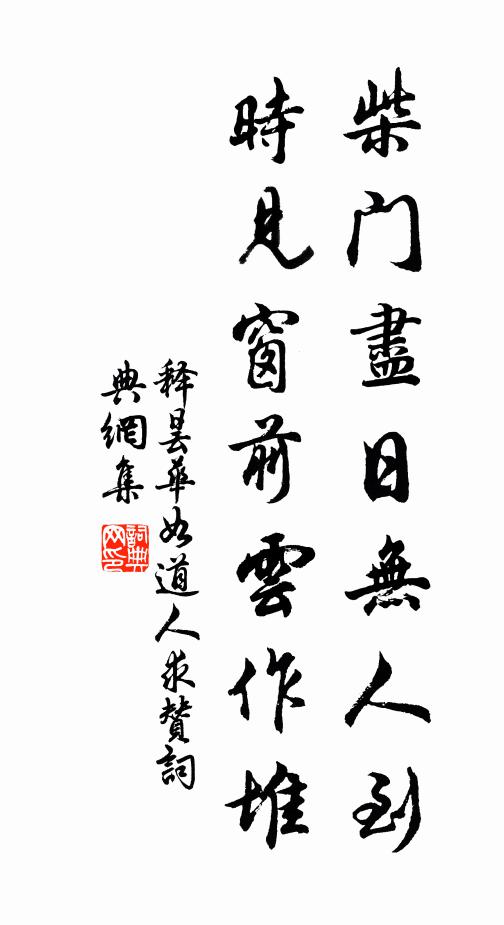 柴门盡日無人到
時見窗前雲作堆
释曇華如道人求贊詞
典網集
詞典
网印